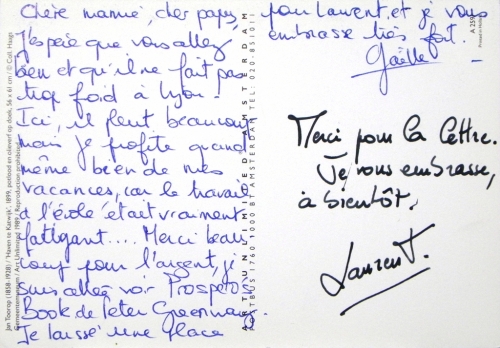 Chère mamie, cher papy,
J'espère que vous allez
bien et qu'il ne fait pas
trop froid à Lyon !
Ici, il pleut beaucoup
mais je profite quand
même bien de mes
vacances, car le travail
à l'école était vraiment
fatigant.... Merci beau-
coup pour l'argent, je
suis allée voir Prospero's
Book de Peter Greenway.
Je laisse une place
pour Laurent, et je vous
embrasse très fort.
Gaëlle
Merci pour la lettre.
Je vous embrasse,
à bientôt,
Laurent.
Jan Toorop (1858-1928) / 'Haven te Katwijk', 1899, pastood en olieverf op doek, 56 x 61 cm / © Coll. Haags
Gemeentemuseum / Art Unlimited 1989 / Reproduction prohibited
ART UNLIMITED AMSTERDAM
POSTBUS 1760 1000 BT AMSTERDAM TEL: 020-851011